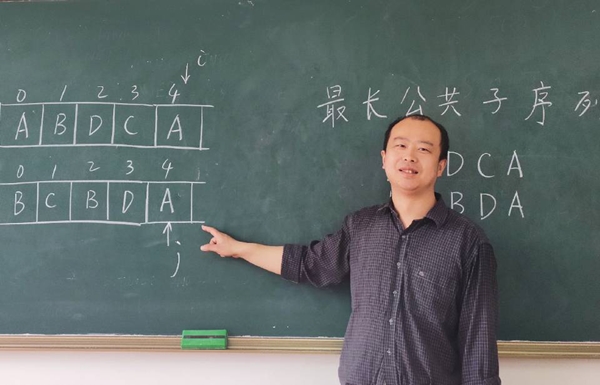 i
0 1 2 3 4
A B D C A
0 1 2 3 4
B C B D A
j
最长公共子序列
DCA
BDA